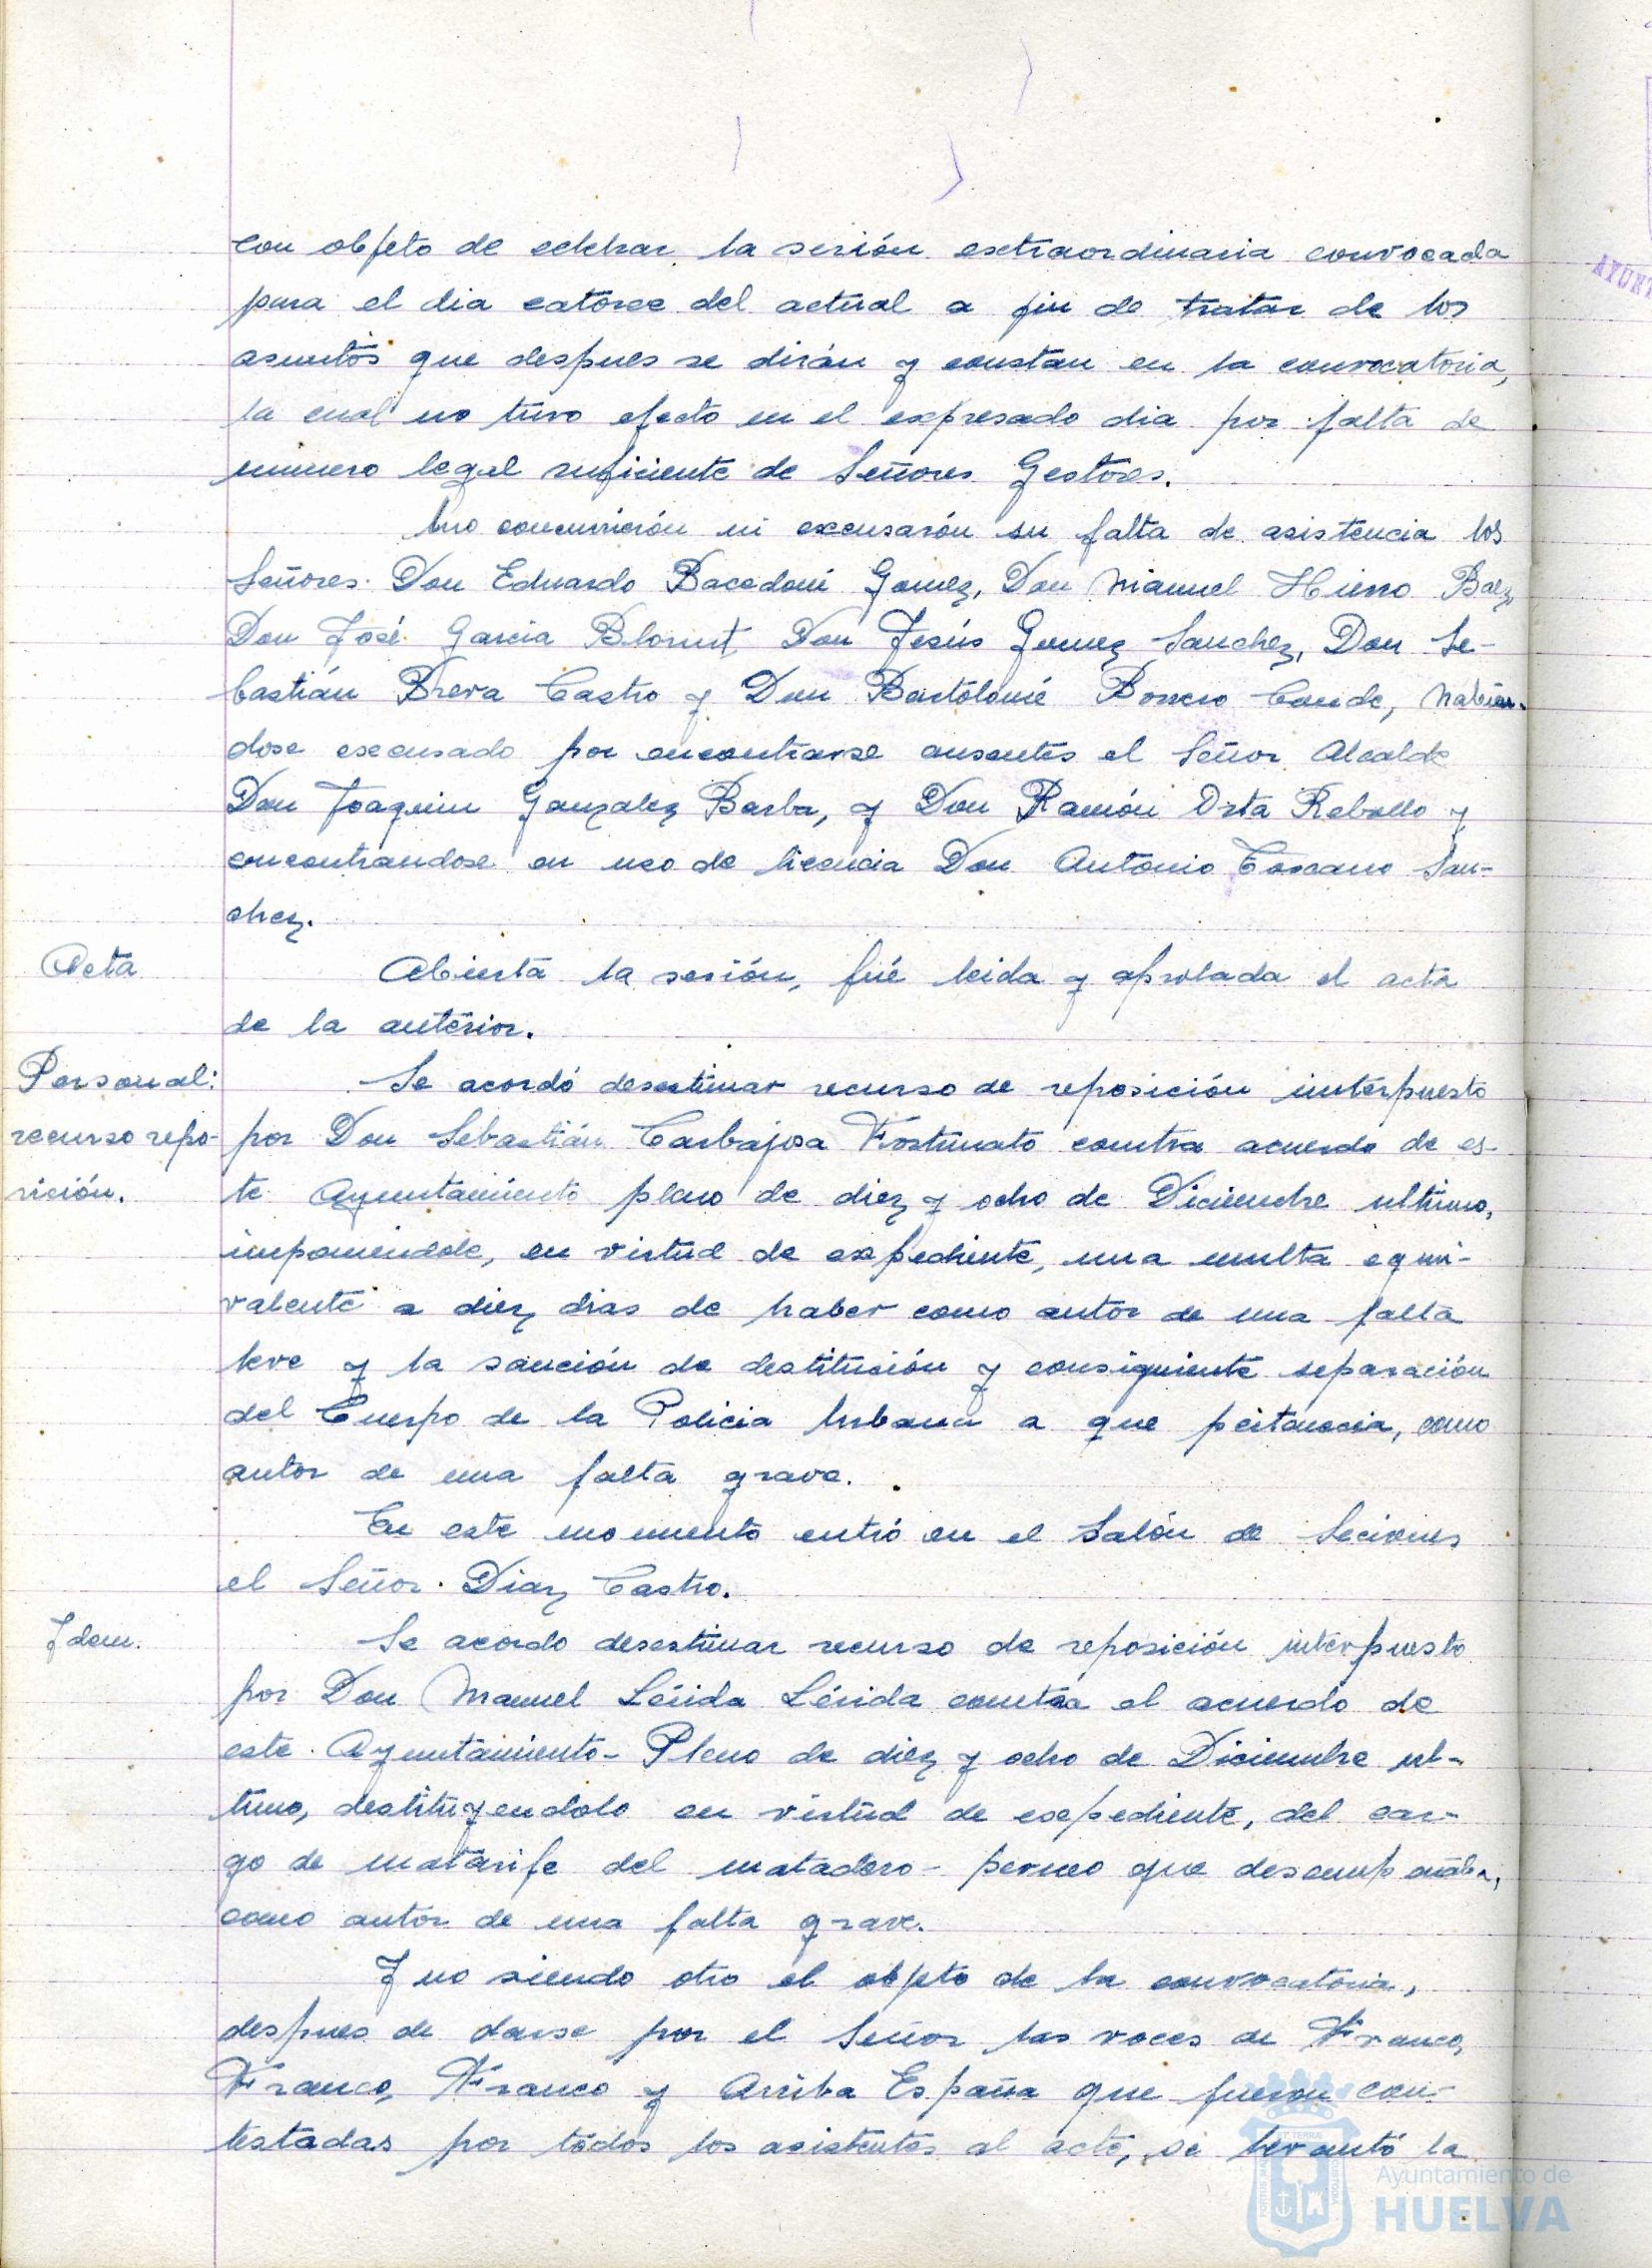 con objeto de celebrar la sesión extraordinaria convocada
para el dia catorce del actual a fin de tratar de los
asuntos que despues se dirán y constan en la convocatoria,
la cual no tuvo efecto en el expresado dia por falta de
numero legal suficiente de Señores Gestores.
No concurrierón ni excusarón su falta de asistencia los
Señores Don Eduardo Bacedoni Gomez, Don Manuel Hierro Baez,
Don José Garcia Don Jesús Gomez Sanchez, Don Se-
bastián Breva Castro y Don Bartólomé Borrero Conde, habien-
dose excusado por encontrarse ausentes el Señor Alcalde
Don Joaquin Gonzalez Barba, y Don Ramón Orta Rebollo y
encontrandose en uso de licencia Don Antonio Toscano San-
chez.
Acta
Abierta la sesión, fué leida y aprobada el acta
de la anterior.
Personal:
recurso repo-
sición.
Se acordó desestimar recurso de reposición interpuesto
por Don Sebastián Carbajosa Fortunato contra acuerdo de es-
te Ayuntamiento pleno de diez y ocho de Diciembre ultimo,
imponiendole, en virtud de expediente, una multa equi-
valente a diez dias de haber como autor de una falta
leve y la sanción de destitución y consiguiente separación
del Cuerpo de la Policia Urbana a que pertenecia, como
autor de una falta grave.
En este momento entró en el Salón de Seciones
el Señor Diaz Castro.
Idem.
Se acordo desestimar recurso de reposición interpuesto
por Don Manuel Lérida Lérida contra el acuerdo de
este Ayuntamiento-Pleno de diez y ocho de Diciembre ul-
timo, destituyendolo en virtud de expediente, del car-
go de matarife del matadero- que desempeñaba,
como autor de una falta grave.
Y no siendo otro el objeto de la convocatoria,
despues de darse por el Señor las voces de Franco,
Franco, Franco y Arriba España que fueron con-
testadas por todos los asistentes al acto, se levantó la
AYUNT
Ayuntamiento de
HUELVA